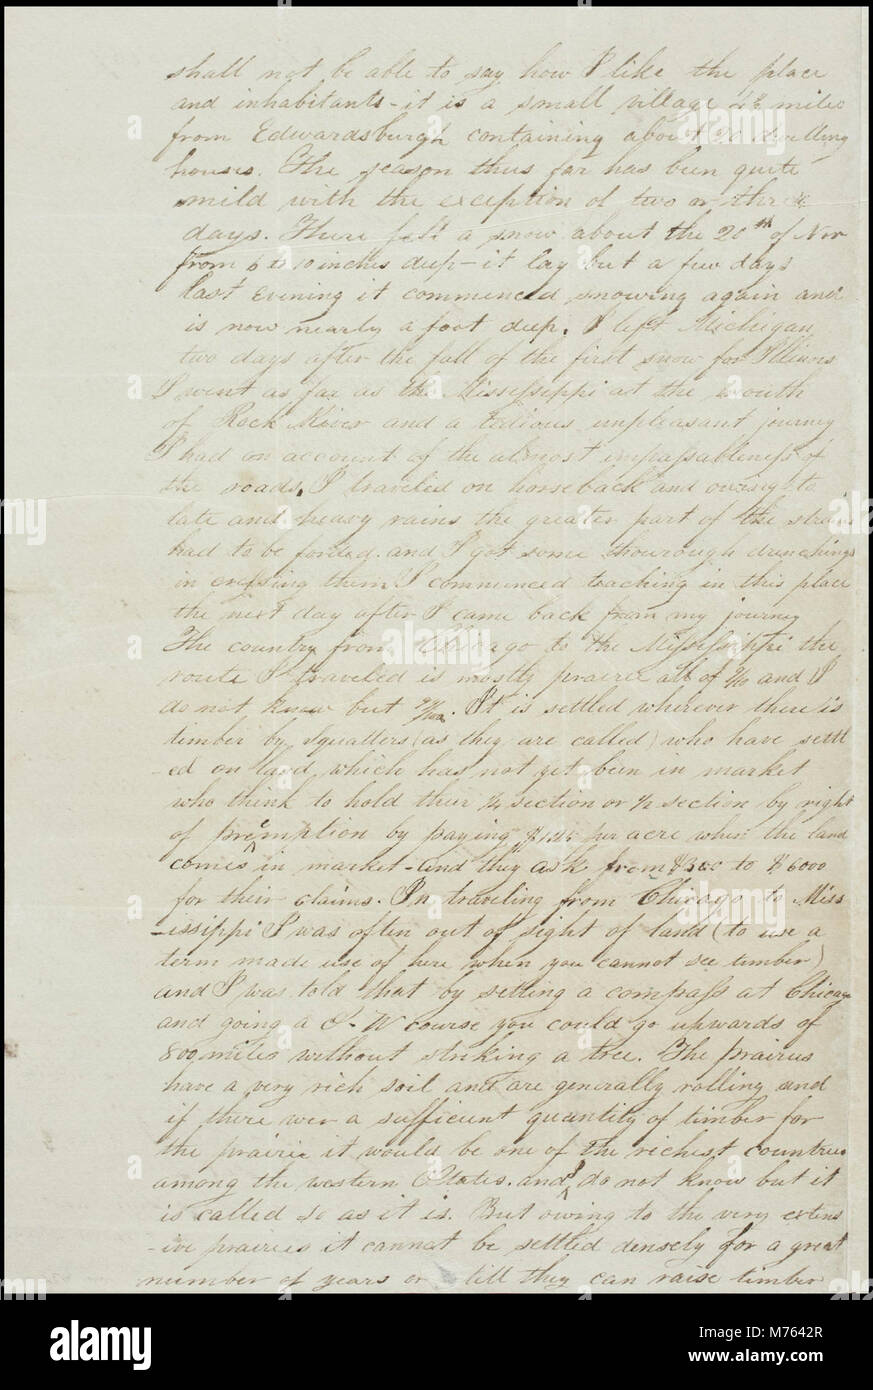 shall not be able to say how I like the place
and inhabitants - it is a small village miles
from Edwardsburgh containing about dwelling
houses. The season thus far has been quite
mild with the exception of two or three
days. There fell a snow about the 20th of Nov
from 6 to 10 inches deep - it lay but a few days
last Evening it commenced snowing again and
is now nearly a foot deep. I left Michigan
two days after the fall of the first snow for Illinois
I went as far as the Missessippi at the mouth
of Rock River and a tedious unpleasant journey
I had on account of the almost impassableness of
the roads. I traveled on horseback and owing to
late and heavy rains the greater part of the streams
had to be forded. and I got some thourough drenchings
in crossing them. I commenced teaching in this place
the next day after I came back from my journey
The country from Chicago to the Missessippi the
route I traveled is mostly prairie all of 9/10 and I
do not know but . It is settled wherever there is
timber by Squatters (as they are called) who have settl
-ed on land which has not yet been in market
who think to hold their 1/4 section or 1/2 section by right
of preemption by paying $1.25 per acre when the land
comes in market - and they ask from $300 to $6000
for their claims. In traveling from Chicago to Miss
-issippi I was often out of sight of land (to use a
term made use of here when you cannot see timber)
and I was told that by setting a compass at Chicago
and going a S-W course you could go upwards of
800 miles without striking a tree. The prairies
have a very rich soil and are generally rolling and
if there wer a sufficient quantity of timber for
the prairie it would be one of the richest countries
among the western States. and I do not know but it
is called so as it is. But owing to the very extens
-ive prairies it cannot be settled densely for a great
number of years or till they can raise timber
alamy
alamy
Image ID: M7642R
www.alamy.com